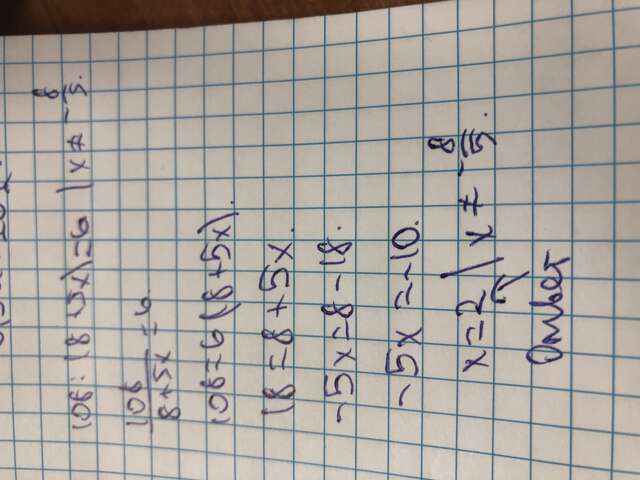 108:(8+5x)=6 | x ≠ -8/5.
108/8+5x = 6.
108=6(8+5x).
18=8+5x.
-5x=8-18.
-5x=-10.
x=2 | x ≠ -8/5.
Ответ